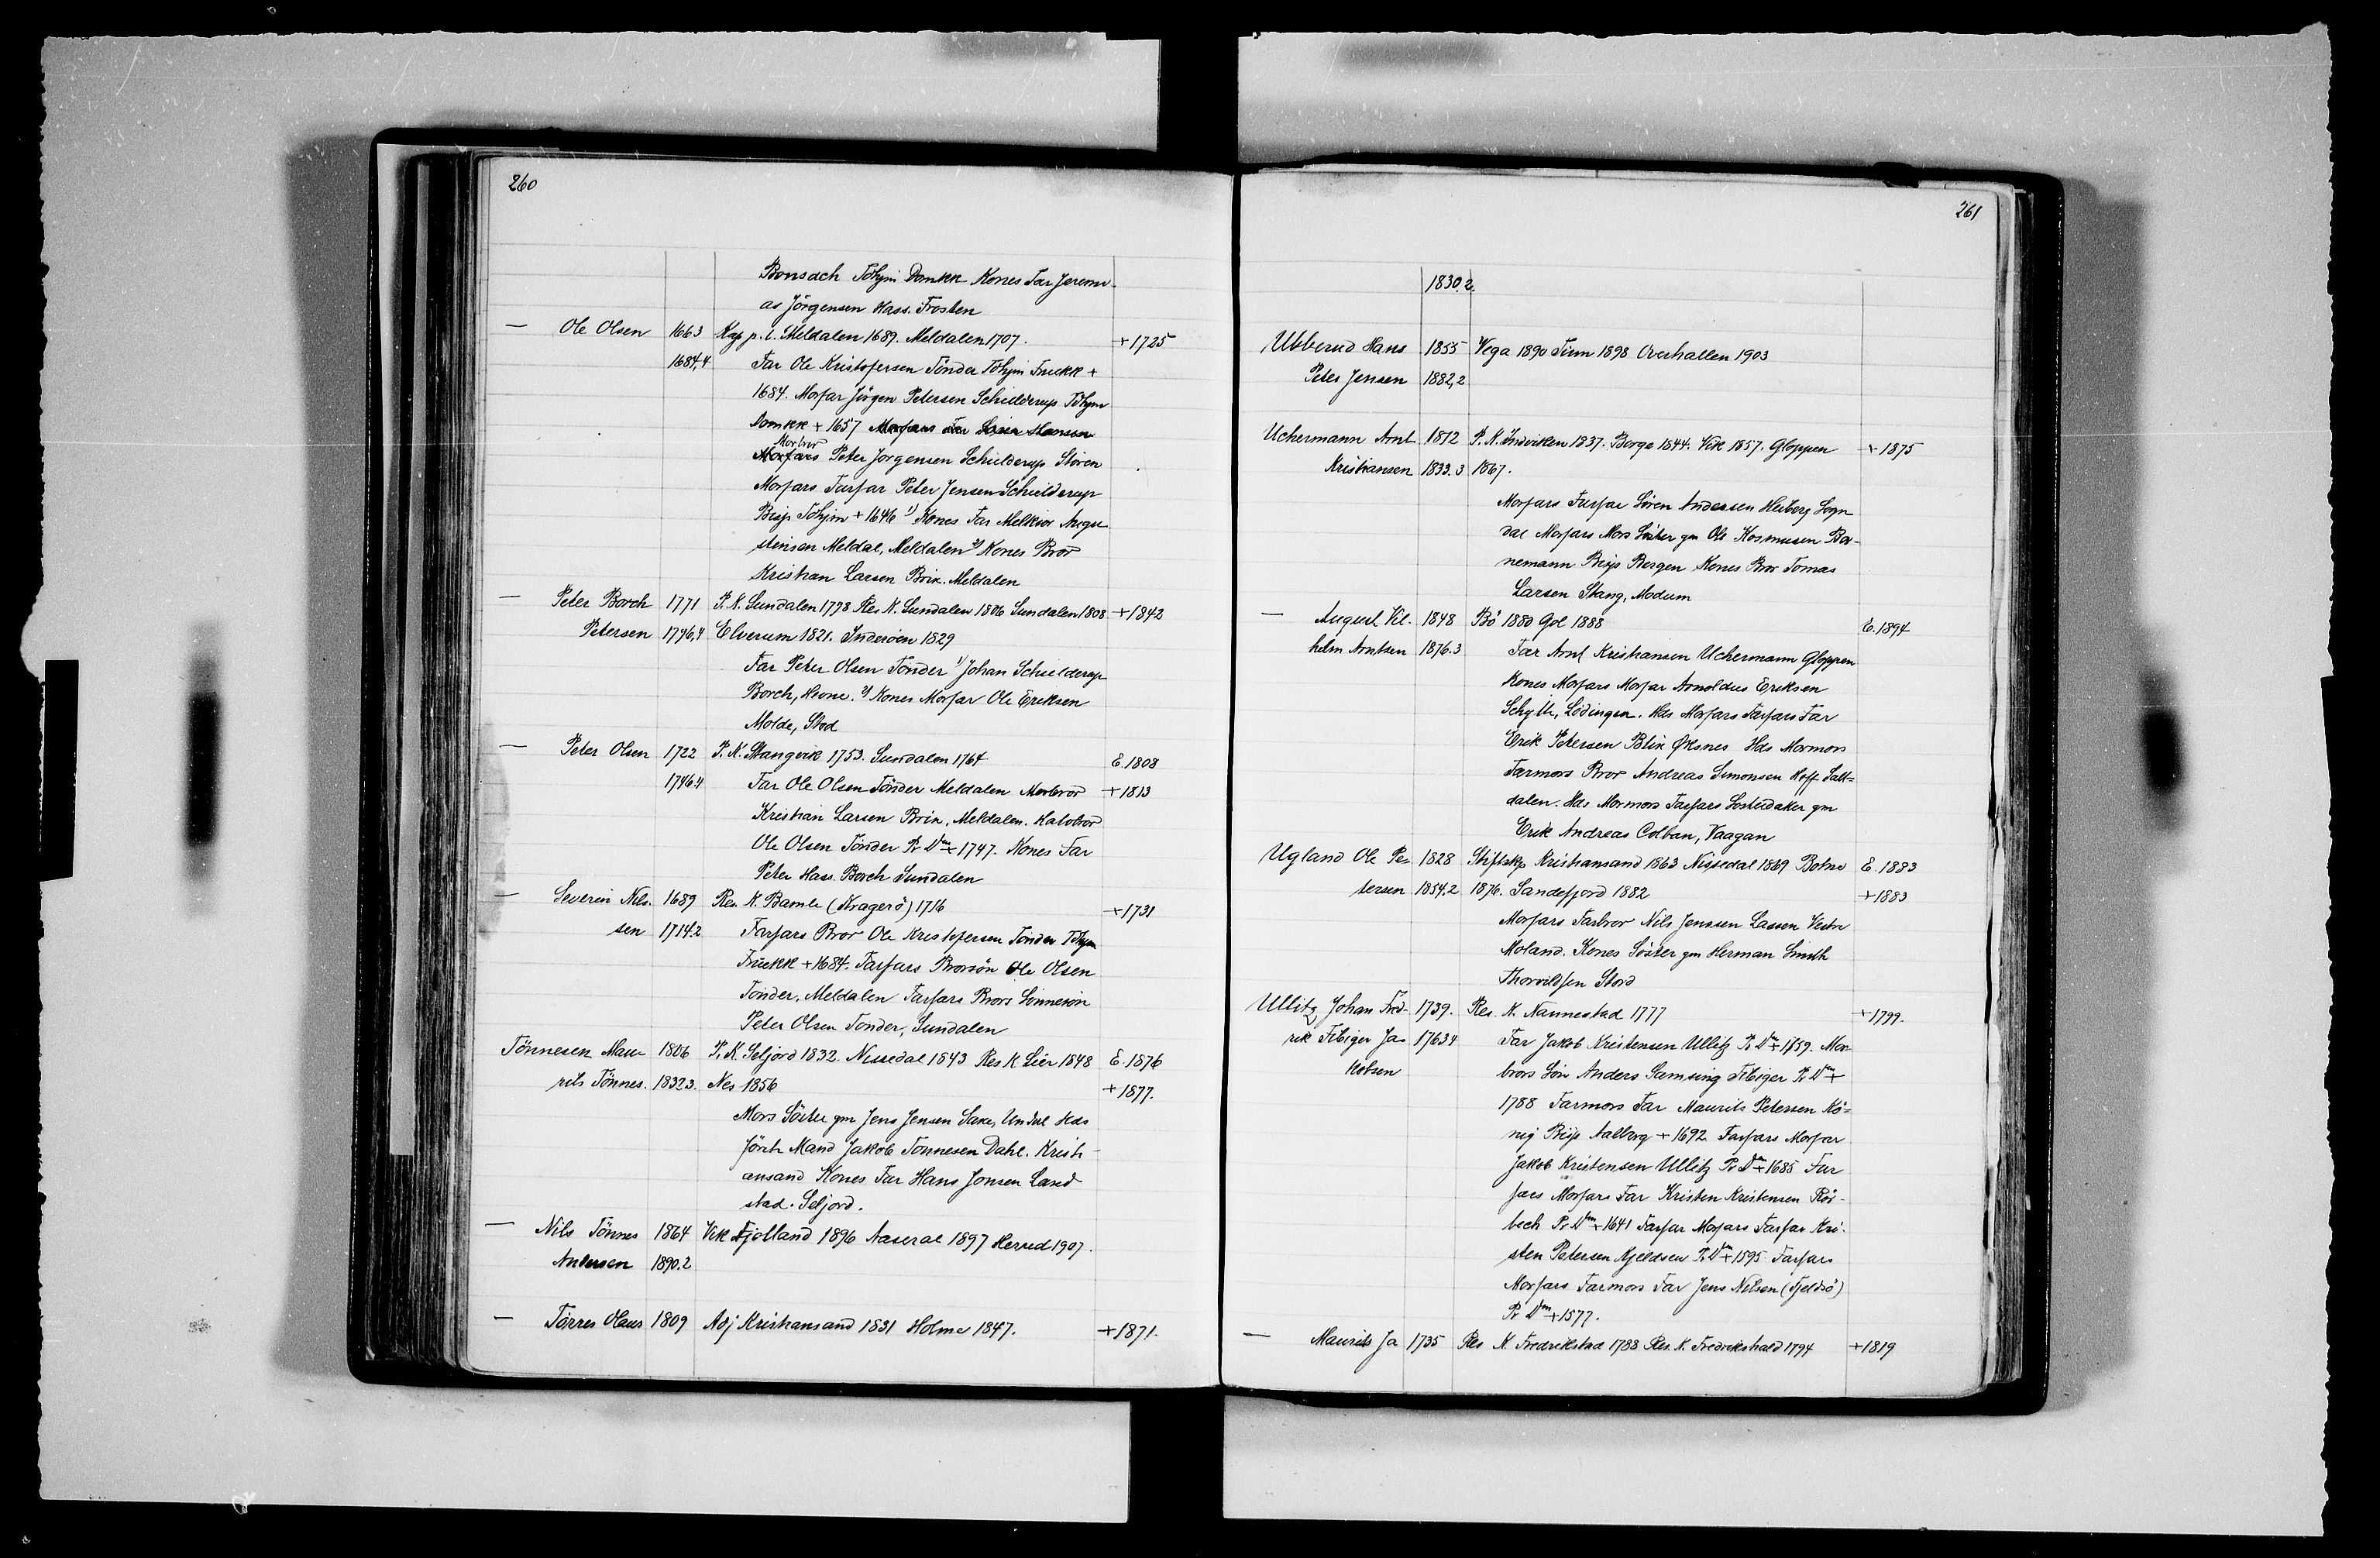 260
Bonsach Tdhjm Domkk Kones Far Jeremi-
as Jörgensen Hass. Frosten
— Ole Olsen 1663 Kap p. l. Meldalen 1689. Meldalen 1707. +1725
1684,4 Far Ole Kristofersen Tönder Tdhjm Fruekk +
1684. Morfar Jörgen Petersen Schielderup Tdhjm
Domkk + 1657 Morfars Far Sören Hansen
Morbror
Morfars Peter Jorgensen Schielderup Stören
Morfars Farfar Peter Jensen Schielderup
Bisp Tdhjm + 1646 1) Kones Far Melkior Augu
stinsen Meldal, Meldalen 2) Kones Bror
Kristian Larsen Brix. Meldalen
— Peter Borch 1771 P. K. Sundalen 1798 Res K. Sundalen 1806 Sundalen 1808 +1842
Petersen 1796,4 Elverum 1821. Inderöen 1829
Far Peter Olsen Tönder 1) Johan Schielderup
Borch, Hevne. 2) Kones Morfar Ole Eriksen
Molde, Stod
— Peter Olsen 1722 P. K. Stangvik 1753. Sundalen 1764 E. 1808
1746.4 Far Ole Olsen Tönder Meldalen Morbror +1813
Kristian Larsen Brix, Meldalen. Halvbror
Ole Olsen Tönder Pr Dm + 1747. Kones Far
Peter Hass. Borch Sundalen
— Severin Nils- 1689 Res. K. Bamle (Kragerö) 1716 +1731
sen 1714.2 Farfars Bror Ole Kristofersen Tönder Tdhjm
Fruekk + 1684. Farfars Brorsön Ole Olsen
Tönder, Meldalen Farfars Brors Sönnesön
Peter Olsen Tönder, Sundalen
Tönnesen Mau- 1806 P. K. Seljord 1832. Nissedal 1843 Res K Lier 1848 E. 1876
rits Tönnes. 1832.3. Nes 1856 +1877.
Mors Söster gm Jens Jensen Saxe, Undal Hds
förste Mand Jakob Tönnesen Dahl. Kristi-
ansand Kones Far Hans Jonsen Land
stad. Seljord.
— Nils Tönnes 1864 Vik Fjotland 1896 Aaseral 1897 Herred 1907.
Andersen 1890.2
— Törres Olaus 1809 Adj Kristiansand 1831 Holme 1847. +1871.
261
1830.2.
Ubberud Hans 1855 Vega 1890 Tinn 1898 Overhallen 1903
Peter Jensen 1882,2
Uchermann Arnt 1812 P. K. Indviken 1837. Borge 1844. Vik 1857. Gloppen +1875
Kristiansen 1833.3 1867.
Morfars Farfar Sören Andersen Heiberg Sogn
dal Morfars Mors Söster gm Ole Rasmusen Bor-
nemann Bisp Bergen Kones Bror Tomas
Larsen Stang, Modum
— August Vil- 1848 Bö 1880 Gol 1888 E. 1894
helm Arntsen 1876.3 Far Arnt Kristiansen Uchermann Gloppen
Kones Morfars Morfar Arnoldus Eriksen
Schytte, Lödingen. Hds Morfars Farfars Far
Erik Petersen Blix Øksnes Hds Mormors
Farmors Bror Andreas Simonsen Hoff Salt-
dalen. Hds Mormors Farfars Sösterdatter gm
Erik Andreas Colban, Vaagan
Ugland Ole Pe- 1828 Stiftskp Kristiansand 1863 Nissedal 1869 Botne E. 1883
tersen 1854.2 1876. Sandefjord 1882 +1883
Morfars Farbror Nils Jenssen Lassen Vestre
Moland. Kones Söster gm Herman Smith
Thorvildsen Stord
Ullitz Johan Fred- 1739. Res. K. Nannestad 1777 +1799.
rik Fibiger Ja- 1763 4 Far Jakob Kristensen Ullitz Pr Dm + 1759. Mor
kobsen brors Sön Anders Samsing Fibiger Pr Dm +
1788 Farmors Far Maurits Petersen Kö-
nig Bisp Aalborg + 1692 Farfars Morfar
Jakob Kristensen Ullitz Pr Dm + 1685 Far
fars Morfars Far Kristen Kristensen Rör-
bech Pr Dm + 1641 Farfar Morfars Farfar Kri-
sten Petersen Kjeldsen Pr Dm + 1595 Farfars
Morfars Farmors Far Jens Nilsen (Fjeldsö)
Pr Dm + 1577.
— Maurits Ja 1735 Res K. Fredrikstad 1788 Res. K. Fredrikshald 1794 +1819